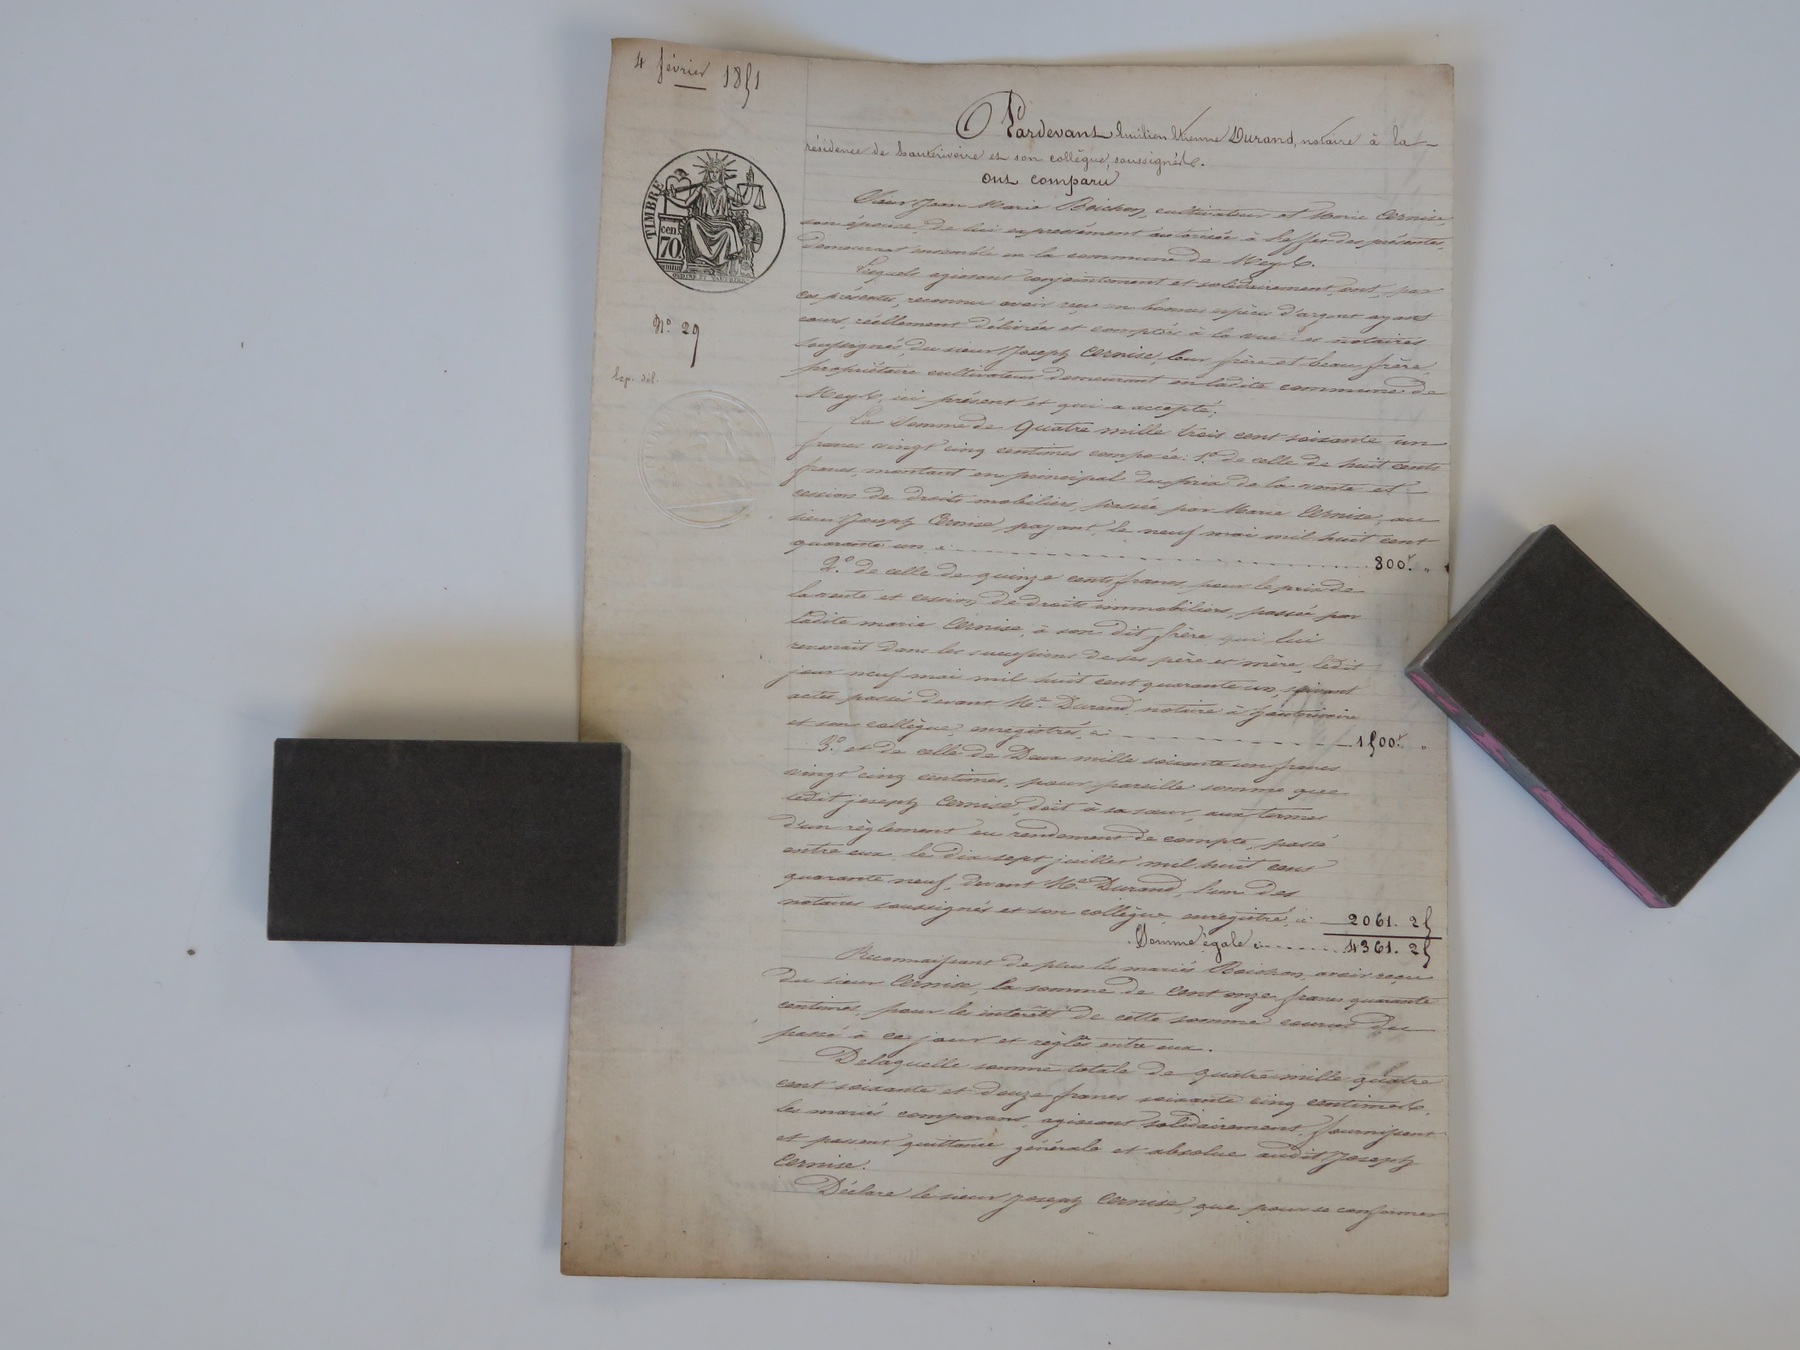 4 février 1851
TIMBRE
cen.
70
N.o 29
Exp. dél.
Pardevant Etienne Durand, notaire à la
résidence de hauterivoire et son collègue, soussignés.
ont comparu
Sieur Jean Marie Boichon, cultivateur et Marie Cernise,
son épouse, de lui expressément autorisée à l'effet des présentes,
demeurant ensemble en la commune de Meys.
Lesquels agissant conjointement et solidairement, ont, par
ces présentes, reconnu avoir reçu en bonnes espèces d'argent ayant
cours, réellement délivrées et comptées à la vue des notaires
soussignés, du sieur Joseph Cernise, leur frère et beau frère,
propriétaire cultivateur demeurant en ladite commune de
Meys, ici présent et qui a accepté;
La somme de Quatre mille trois cent soixante un
francs vingt cinq centimes composée: 1.o de celle de huit cents
francs, montant en principal du prix de la vente et
cession de droits mobiliers, passée par Marie Cernise, au
sieur Joseph Cernise, payant, le neuf mai mil huit cent
quarante un, ci 800f. "
2.o de celle de quinze cents francs, pour le prix de
la vente et cession de droits immobiliers, passée par
ladite marie Cernise, à son dit frère qui lui
revenait dans les successions de ses père et mère, ledit
jour neuf mai mil huit cent quarante un, suivant
actes passés devant Me. Durand, notaire à hauterivoire
et son collègue, enregistrés, ci 1500f. "
3.o et de celle de Deux mille soixante un francs
vingt cinq centimes, pour pareille somme que
ledit joseph Cernise, doit à sa sœur, aux termes
d'un règlement ou rendement de compte, passé
entre eux, le dix sept juillet mil huit cent
quarante neuf, devant Me. Durand, l'un des
notaires soussignés et son collègue, enregistré, ci 2061. 25
Somme égale ci 4361. 25
Reconnaissent de plus les mariés Boichon, avoir reçu
du sieur Cernise, la somme de Cent onze francs quarante
centimes, pour les intérêts de cette somme courus du
passé à ce jour et réglés entre eux.
De laquelle somme totale de quatre mille quatre
cent soixante et douze francs soixante cinq centimes,
les mariés comparans, agissant solidairement, fournissent
et passent quittance générale et absolue audit Joseph
Cernise.
Déclare le sieur Joseph Cernise, que pour se conformer